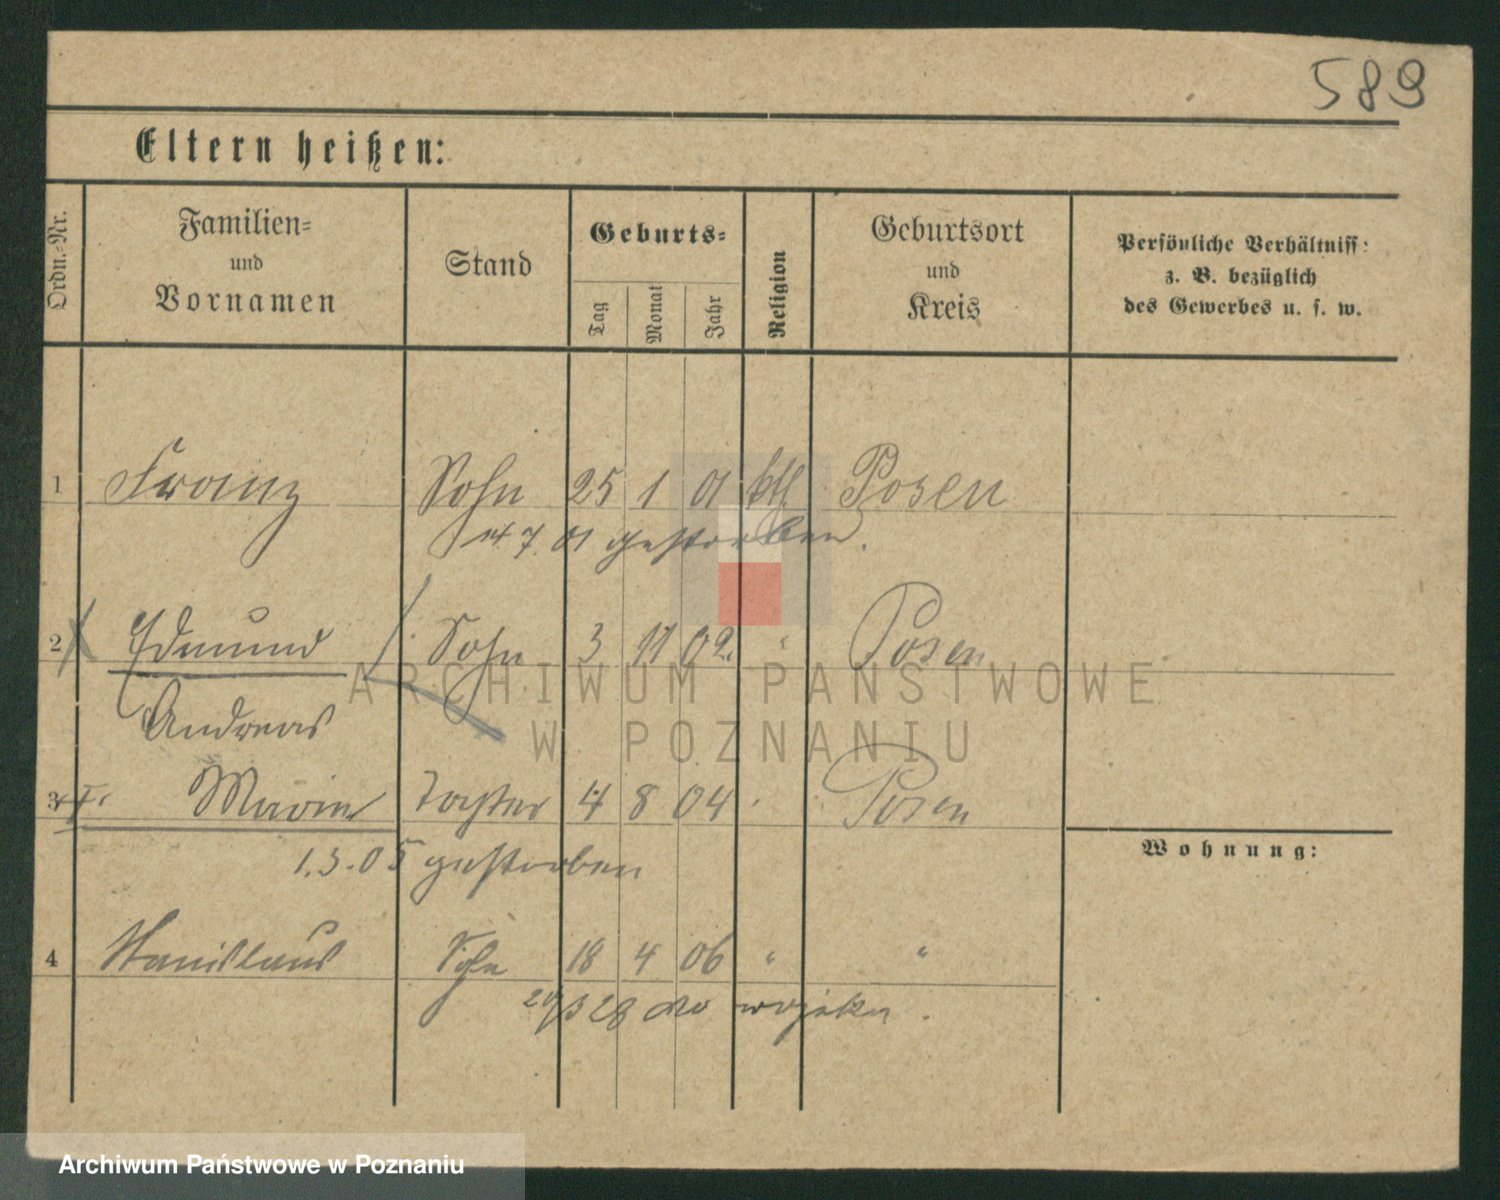 589
Eltern heißen:
Ordn.-Nr.
Familien-
und
Vornamen
Stand
Geburts-
Tag
Monat
Jahr
Religion
Geburtsort
und
Kreis
Persönliche Verhältniss:
z. B. bezüglich
des Gewerbes u. s. w.
1 Franz Sohn 25 1 01 ktl Posen
7. 01 gestorben.
2 Edmund Sohn 3 11 02. " Posen
Andreas
3 Marie Tochter 4 8 04 Posen
1.3.05 gestorben
Wohnung:
4 Stanislaus Sohn 18 4 06 " "
28 do wojska.
ARCHIWUM PAŃSTWOWE
W POZNANIU
Archiwum Państwowe w Poznaniu